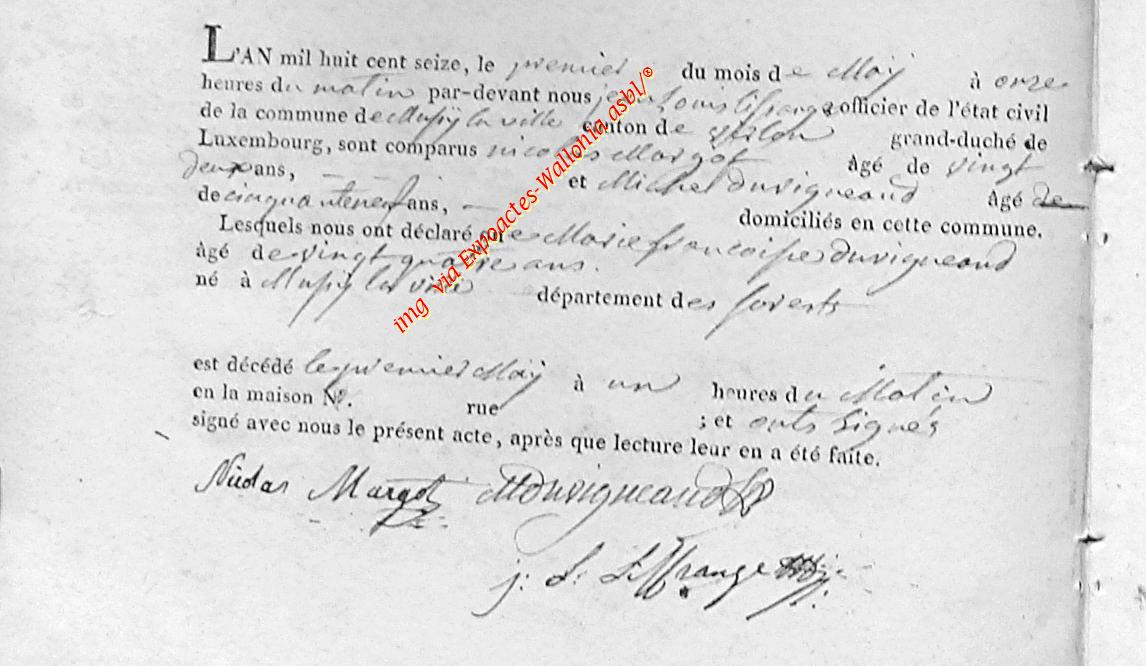 L'AN mil huit cent seize, le premier du mois de Maÿ à onze
heures du matin par-devant nous jean Louis lifrange officier de l'état civil
de la commune de Mussÿ la ville canton de grand-duché de
Luxembourg, sont comparus nicolas Margot âgé de vingt
deux ans, et Michel duvigneaud âgé de
de cinquanteneuf ans, domiciliés en cette commune.
Lesquels nous ont déclaré que Marie francoise duvigneaud
âgé de vingt quatre ans.
né à Mussÿ la ville département des forests
est décédé le premier Maÿ à un heures du Matin
en la maison N°. rue ; et onts signés
signé avec nous le présent acte, après que lecture leur en a été faite.
Nicolas Margot MDuvigneaud
j: L: Liffrange
img via Expoactes-Wallonia asbl/®